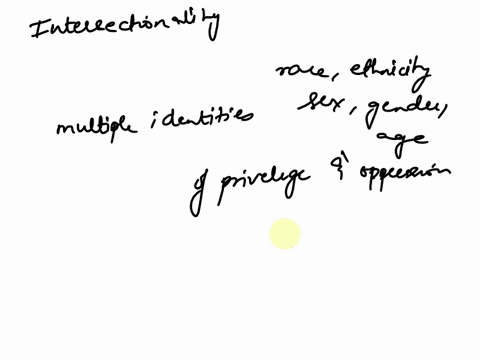 Intersectionality
race, ethnicity
multiple identities sex, gender,
age
of privelege & oppression